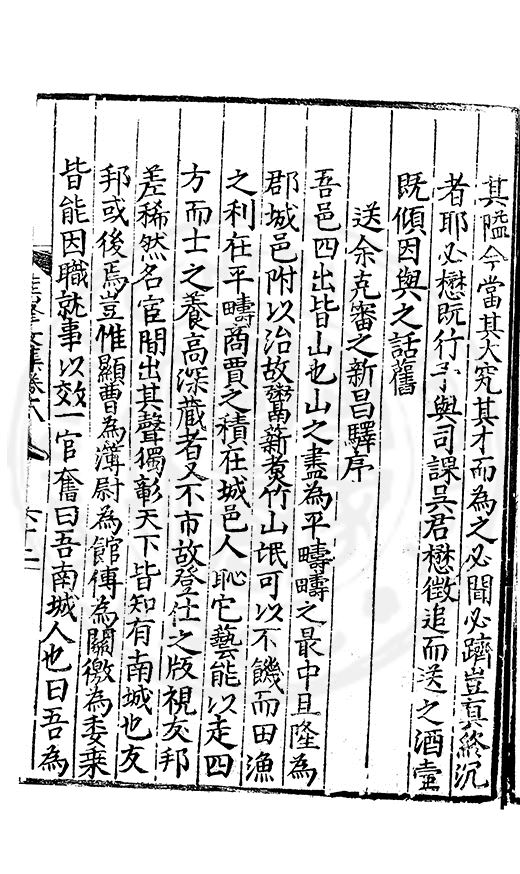 其隘今當其大究其才而為之必聞必躋豈真終沉
者耶必懋既行予與司課吴君懋徵追而送之酒壺
既傾因與之話舊
送余克審之新昌驛序
吾邑四出皆山也山之盡為平疇疇之最中且隆為
郡城邑附以治故鬻薪煑竹山氓可以不饑而田漁
之利在平疇商賈之積在城邑人恥它藝能以走四
方而士之養高深藏者又不市故登仕之版視友邦
差稀然名宦間出其聲獨彰天下皆知有南城也友
邦或後焉豈惟顯曹為簿尉為館傳為關徼為委乗
皆能因職就事以效一官奮曰吾南城人也曰吾為
文集卷六
六十二